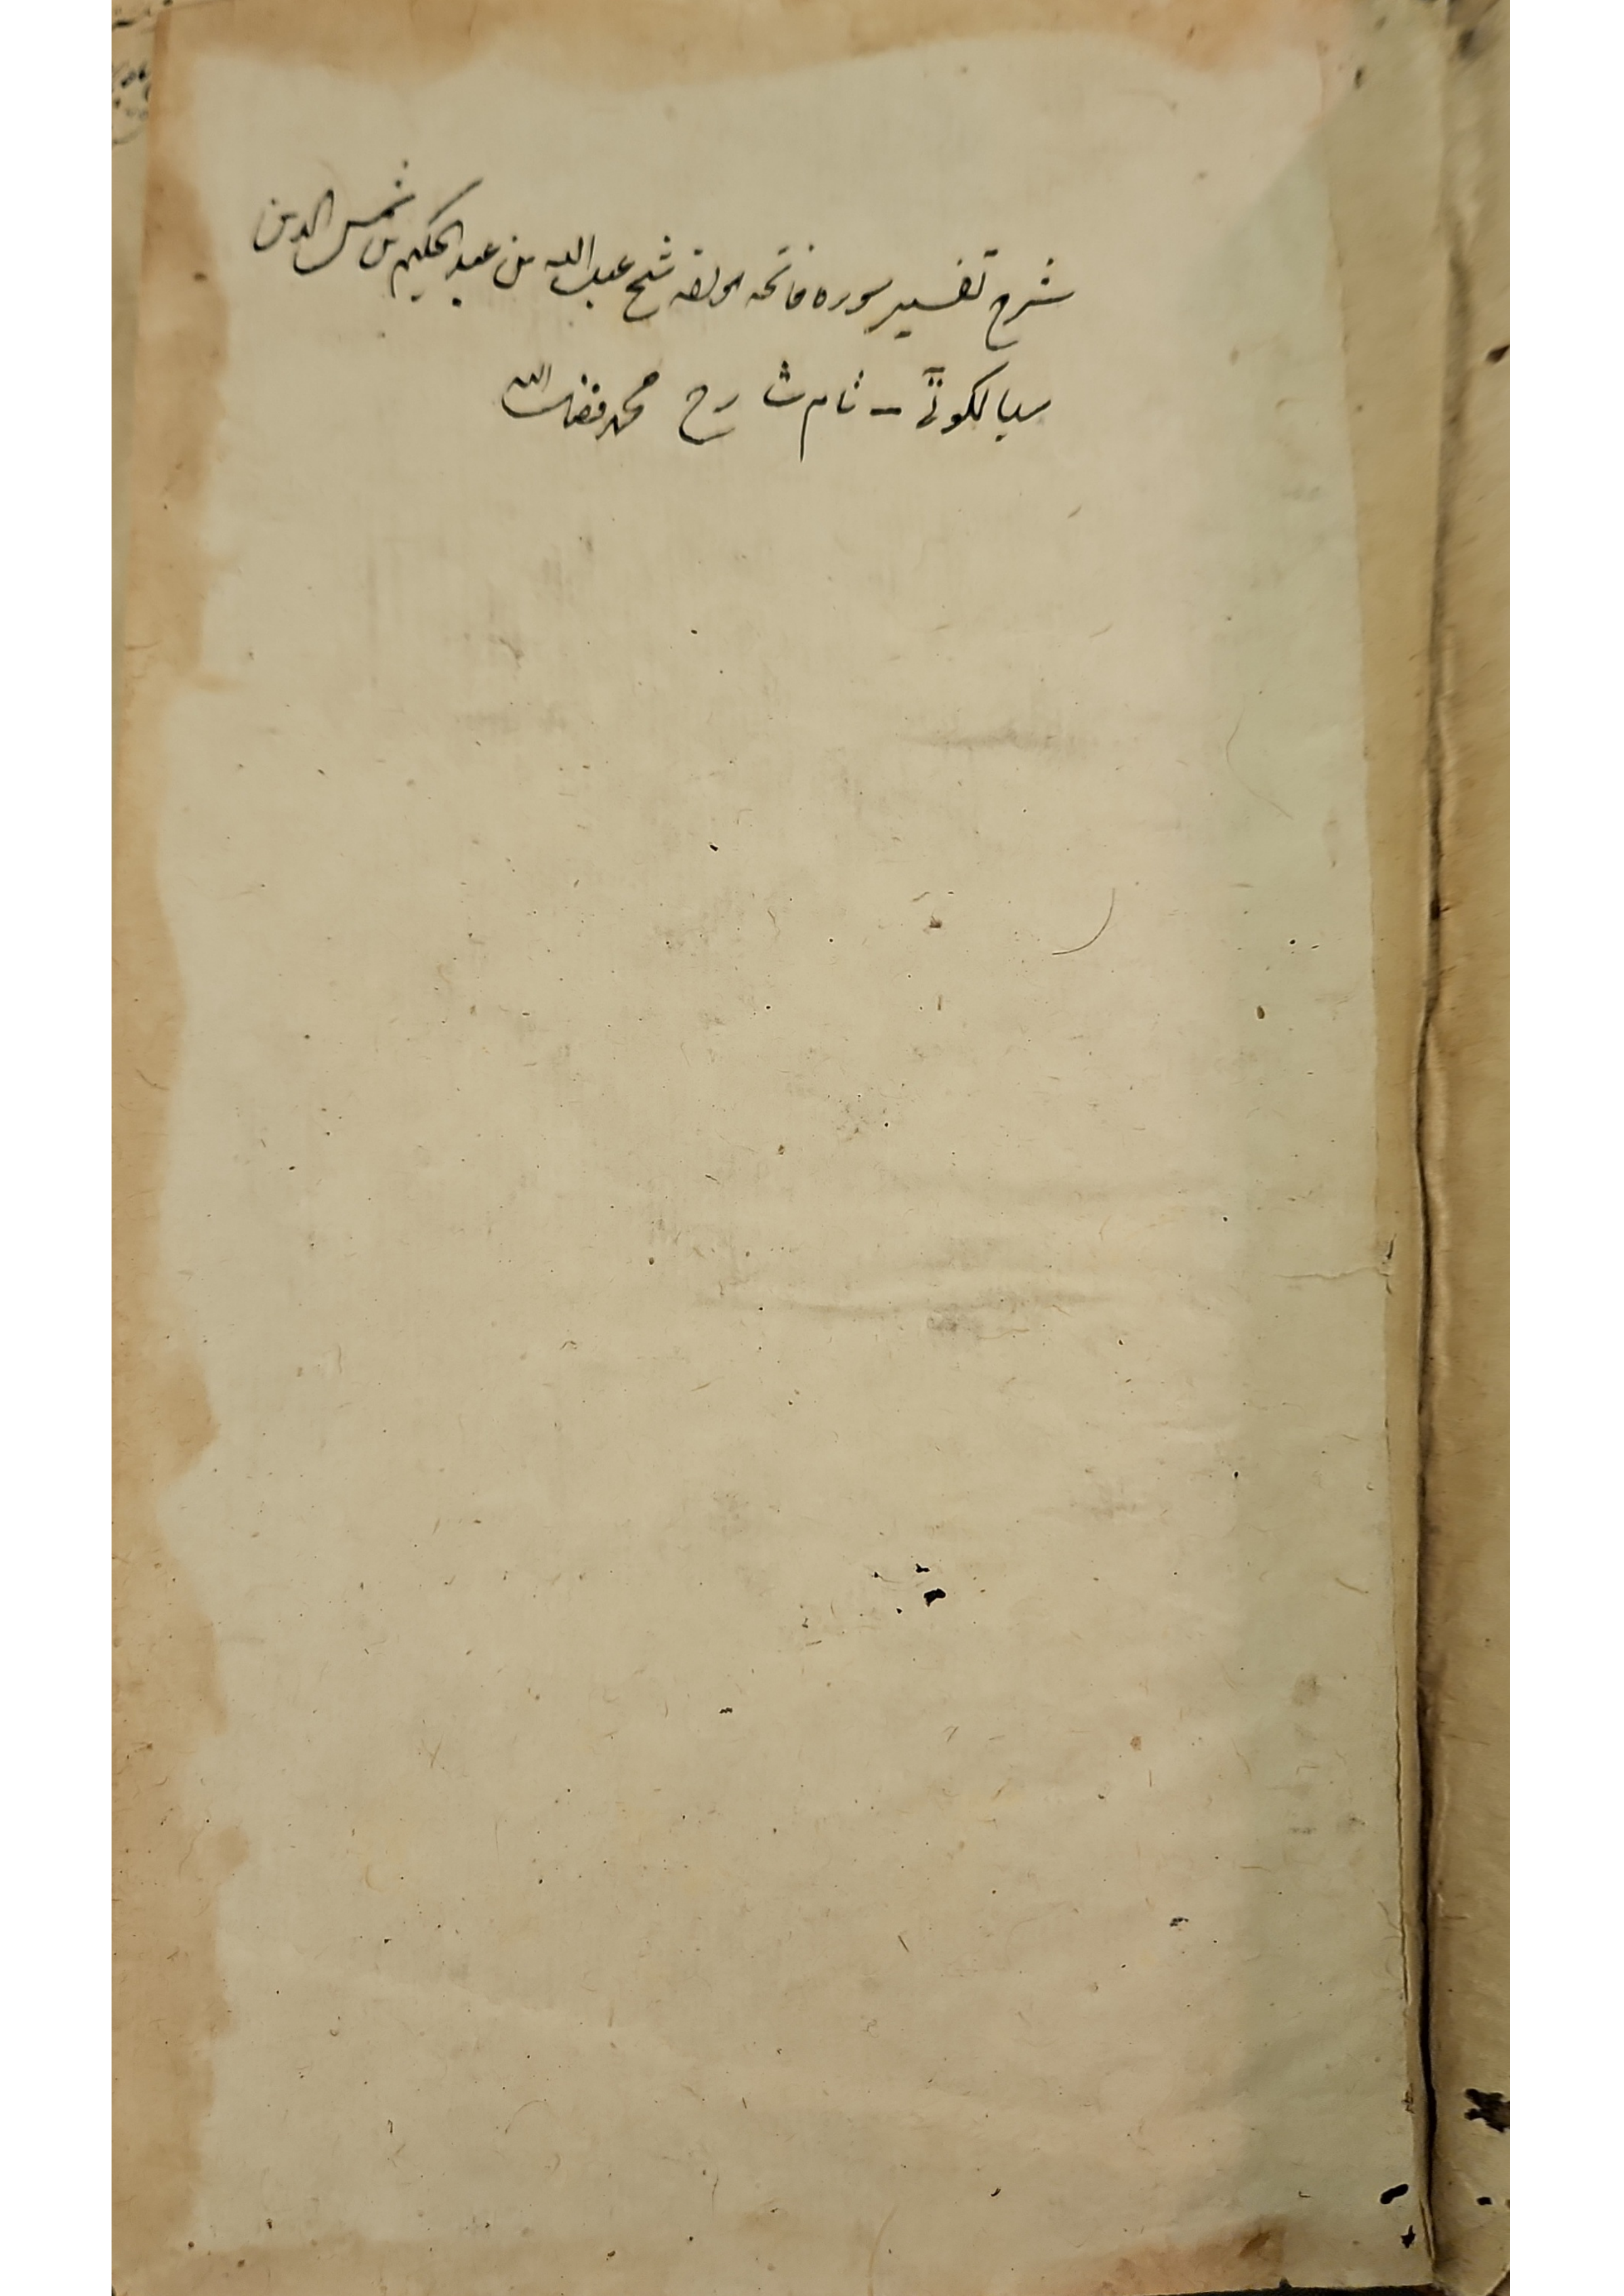 شرح تفسیر سوره فاتحه مولفه شیخ عبدالله بن عبدالحکیم بن شمس الدین
سیالکوٹی – نام شارح محمد فضل الله